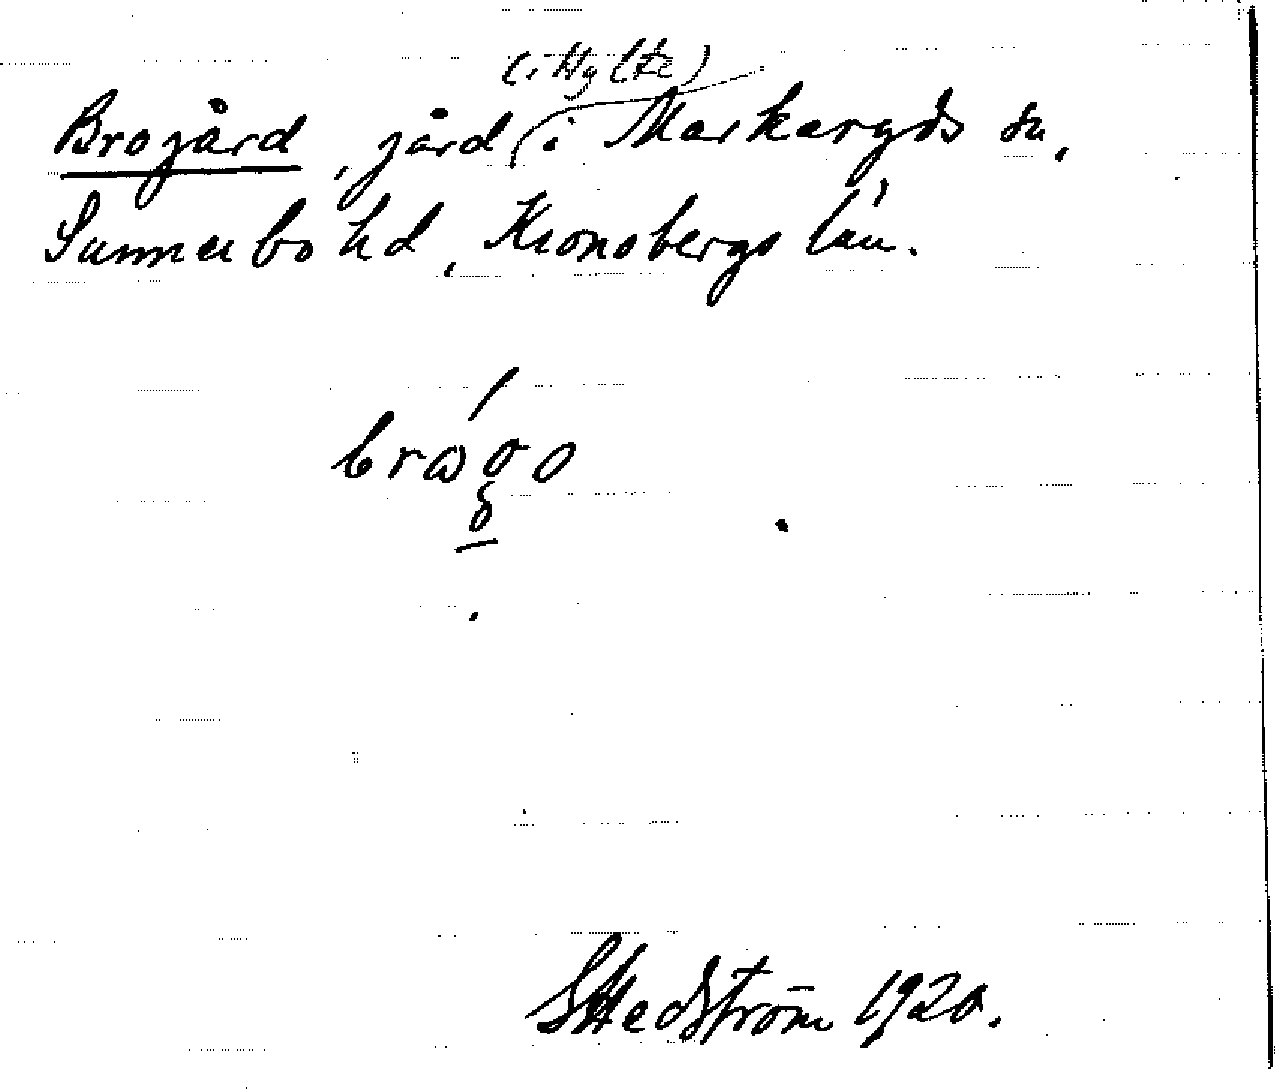 (i Hylte)
Brogård, gård i Markaryds sn,
Sunnerbo hd, Kronobergs län.
SHedström 1920.